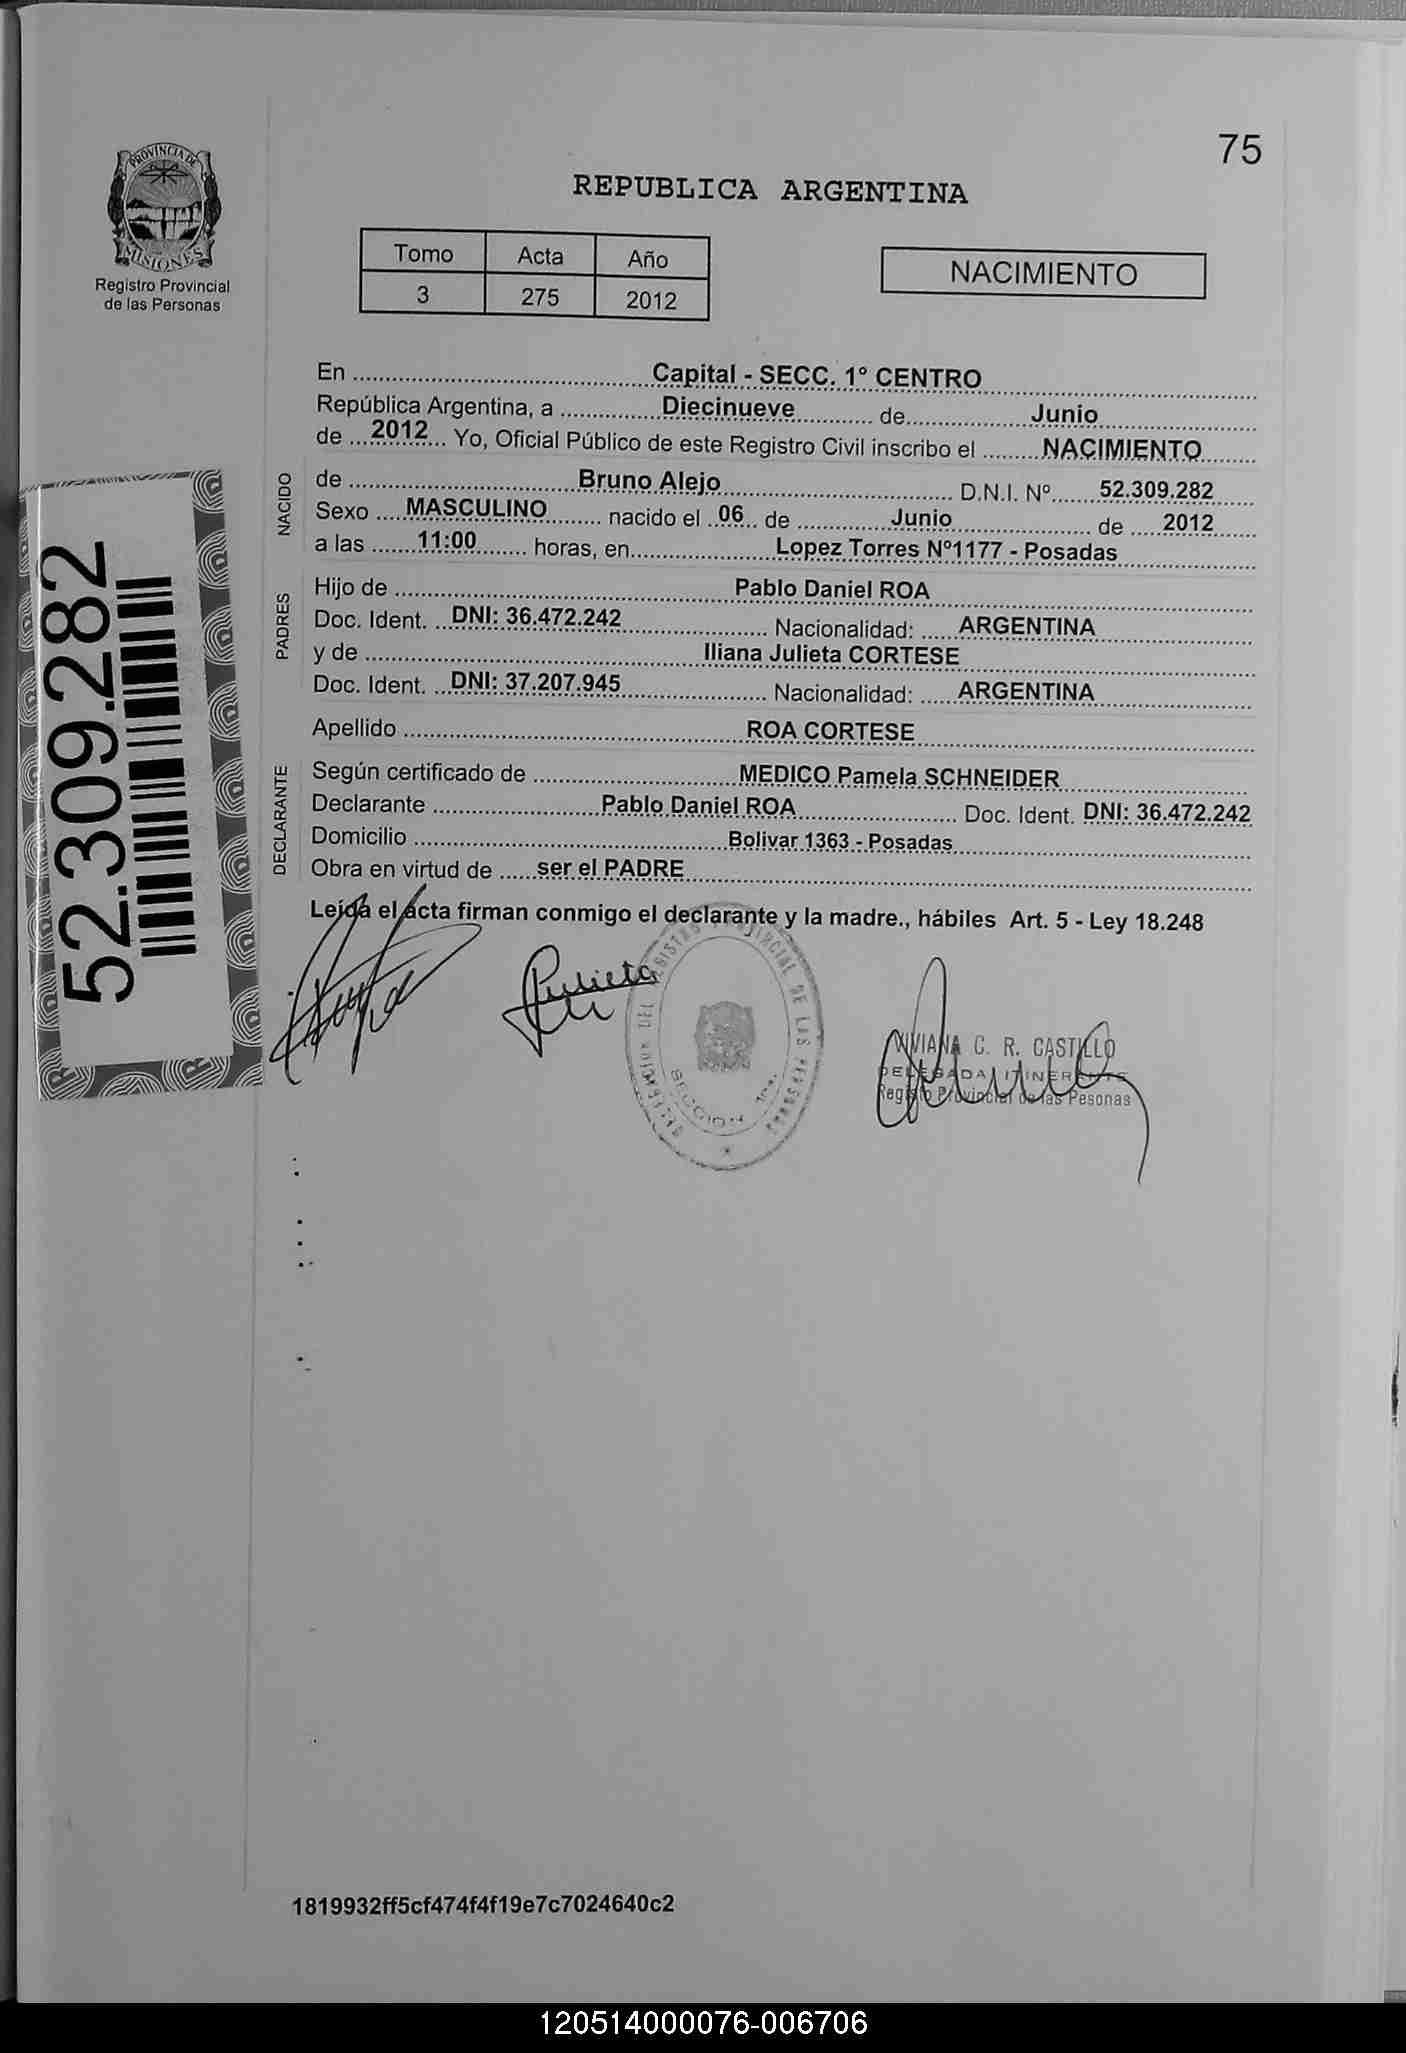 75
PROVINCIA DE
MISIONES
Registro Provincial
de las Personas
REPUBLICA ARGENTINA
Tomo Acta Año
3 275 2012
NACIMIENTO
En Capital - SECC. 1º CENTRO
República Argentina, a Diecinueve de Junio
de 2012 Yo, Oficial Público de este Registro Civil inscribo el NACIMIENTO
NACIDO
de Bruno Alejo D.N.I. Nº 52.309.282
Sexo MASCULINO nacido el 06 de Junio de 2012
a las 11:00 horas, en Lopez Torres Nº1177 - Posadas
PADRES
Hijo de Pablo Daniel ROA
Doc. Ident. DNI: 36.472.242 Nacionalidad: ARGENTINA
y de Iliana Julieta CORTESE
Doc. Ident. DNI: 37.207.945 Nacionalidad: ARGENTINA
Apellido ROA CORTESE
DECLARANTE
Según certificado de MEDICO Pamela SCHNEIDER
Declarante Pablo Daniel ROA Doc. Ident. DNI: 36.472.242
Domicilio Bolivar 1363 - Posadas
Obra en virtud de ser el PADRE
Leída el acta firman conmigo el declarante y la madre., hábiles Art. 5 - Ley 18.248
52.309.282
Julieta
REGISTRO PROVINCIAL DE LAS PERSONAS
SECCION 1ra.
VIVIANA C. R. CASTILLO
DELEGADA ITINERANTE
Registro Provincial de las Pesonas
1819932ff5cf474f4f19e7c7024640c2
120514000076-006706